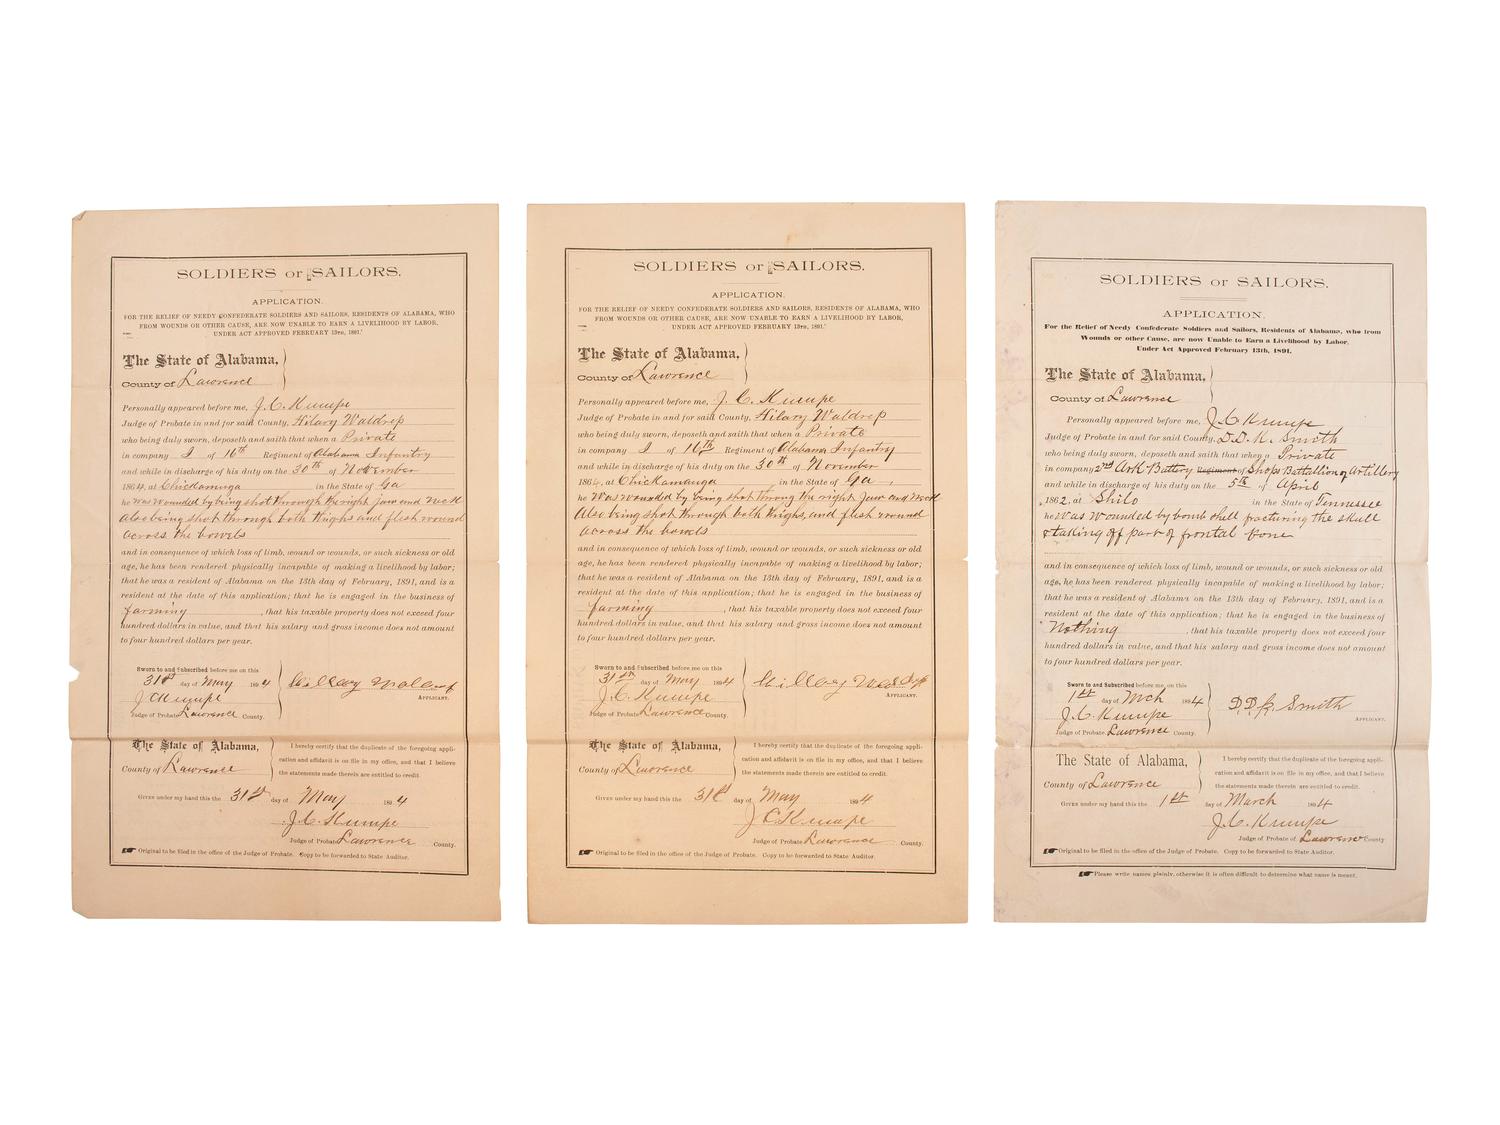 SOLDIERS or SAILORS.
APPLICATION.
FOR THE RELIEF OF NEEDY CONFEDERATE SOLDIERS AND SAILORS, RESIDENTS OF ALABAMA, WHO
FROM WOUNDS OR OTHER CAUSE, ARE NOW UNABLE TO EARN A LIVELIHOOD BY LABOR,
UNDER ACT APPROVED FEBRUARY 13TH, 1891.
The State of Alabama,
County of Lawrence
Personally appeared before me, J. C. Kumpe
Judge of Probate in and for said County, Hilary Waldrep
who being duly sworn, deposeth and saith that when a Private
in company I of 16th Regiment of Alabama Infantry
and while in discharge of his duty on the 30th of November
1864, at Chickamuga in the State of Ga
he was wounded by being shot through the right jaw and neck
Also being shot through both thighs and flesh wound
across the bowels
and in consequence of which loss of limb, wound or wounds, or such sickness or old
age, he has been rendered physically incapable of making a livelihood by labor;
that he was a resident of Alabama on the 13th day of February, 1891, and is a
resident at the date of this application; that he is engaged in the business of
farming , that his taxable property does not exceed four
hundred dollars in value, and that his salary and gross income does not amount
to four hundred dollars per year.
Sworn to and Subscribed before me on this
31st day of May 1894
J C Kumpe
Judge of Probate Lawrence County.
APPLICANT.
The State of Alabama,
County of Lawrence
I hereby certify that the duplicate of the foregoing appli-
cation and affidavit is on file in my office, and that I believe
the statements made therein are entitled to credit.
Given under my hand this the 31st day of May 1894
J. C. Kumpe
Judge of Probate Lawrence County.
Original to be filed in the office of the Judge of Probate. Copy to be forwarded to State Auditor.
SOLDIERS or SAILORS.
APPLICATION.
FOR THE RELIEF OF NEEDY CONFEDERATE SOLDIERS AND SAILORS, RESIDENTS OF ALABAMA, WHO
FROM WOUNDS OR OTHER CAUSE, ARE NOW UNABLE TO EARN A LIVELIHOOD BY LABOR,
UNDER ACT APPROVED FEBRUARY 13TH, 1891.
The State of Alabama,
County of Lawrence
Personally appeared before me, J. C. Kumpe
Judge of Probate in and for said County, Hilary Waldrep
who being duly sworn, deposeth and saith that when a Private
in company I of 16th Regiment of Alabama Infantry
and while in discharge of his duty on the 30th of November
1864, at Chickamauga in the State of Ga
he was wounded by being shot throug the right Jaw and Neck
Also being shot through both thighs, and flesh wound
across the bowels
and in consequence of which loss of limb, wound or wounds, or such sickness or old
age, he has been rendered physically incapable of making a livelihood by labor;
that he was a resident of Alabama on the 13th day of February, 1891, and is a
resident at the date of this application; that he is engaged in the business of
farming , that his taxable property does not exceed four
hundred dollars in value, and that his salary and gross income does not amount
to four hundred dollars per year.
Sworn to and Subscribed before me on this
31st day of May 1894
J. C. Kumpe
Judge of Probate Lawrence County.
APPLICANT.
The State of Alabama,
County of Lawrence
I hereby certify that the duplicate of the foregoing appli-
cation and affidavit is on file in my office, and that I believe
the statements made therein are entitled to credit.
Given under my hand this the 31st day of May 1894
J C Kumpe
Judge of Probate Lawrence County.
Original to be filed in the office of the Judge of Probate. Copy to be forwarded to State Auditor.
SOLDIERS or SAILORS.
APPLICATION.
For the Relief of Needy Confederate Soldiers and Sailors, Residents of Alabama, who from
Wounds or other Cause, are now Unable to Earn a Livelihood by Labor,
Under Act Approved February 13th, 1891.
The State of Alabama,
County of Lawrence
Personally appeared before me, J. C. Kumpe
Judge of Probate in and for said County, D. D. K. Smith
who being duly sworn, deposeth and saith that when a Private
in company 2nd Ark Battery Regiment of Shops Battalion of Artillery
and while in discharge of his duty on the 5th of April
1862, at Shilo in the State of Tennessee
he was wounded by bomb shell fracturing the skull
& taking off part of frontal bone
and in consequence of which loss of limb, wound or wounds, or such sickness or old
age, he has been rendered physically incapable of making a livelihood by labor;
that he was a resident of Alabama on the 13th day of February, 1891, and is a
resident at the date of this application; that he is engaged in the business of
Nothing , that his taxable property does not exceed four
hundred dollars in value, and that his salary and gross income does not amount
to four hundred dollars per year.
Sworn to and Subscribed before me, on this
1st day of Mch 1894
J. C. Kumpe
Judge of Probate Lawrence County.
D. D. K. Smith
APPLICANT.
The State of Alabama,
County of Lawrence
I hereby certify that the duplicate of the foregoing appli-
cation and affidavit is on file in my office, and that I believe
the statements made therein are entitled to credit.
Given under my hand this the 1st day of March 1894
J. C. Kumpe
Judge of Probate of Lawrence County
Original to be filed in the office of the Judge of Probate. Copy to be forwarded to State Auditor.
Please write names plainly, otherwise it is often difficult to determine what name is meant.